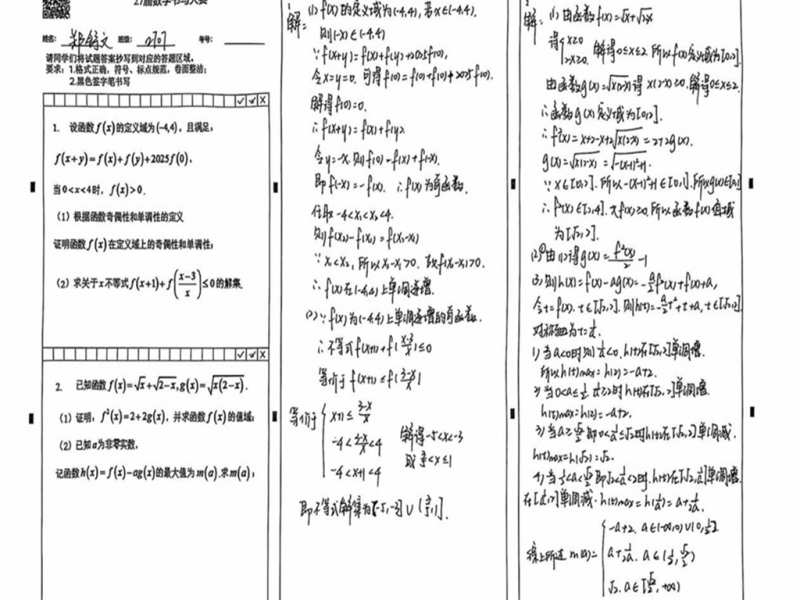 27届数学书写大赛
姓名：
班级：2707
考号：
请同学们将试题答案抄写到对应的答题区域，
要求：1.格式正确，符号、标点规范，卷面整洁；
2.黑色签字笔书写
1. 设函数f(x)的定义域为(-4,4)，且满足：
f(x+y)=f(x)+f(y)+2025f(0)，
当0<x<4时，f(x)>0.
（1）根据函数奇偶性和单调性的定义
证明函数f(x)在定义域上的奇偶性和单调性；
（2）求关于x不等式f(x+1)+f((x-3)/x)≤0的解集.
2. 已知函数f(x)=√x+√(2-x),g(x)=√(x(2-x)).
（1）证明：f²(x)=2+2g(x)，并求函数f(x)的值域；
（2）已知a为非零实数，
记函数h(x)=f(x)-ag(x)的最大值为m(a).求m(a)；
解：(1) f(x)的定义域为(-4,4), 若x∈(-4,4).
则(-x)∈(-4,4)
∵f(x+y)=f(x)+f(y)+2025f(0).
令x=y=0. 可得f(0)=f(0)+f(0)+2025f(0).
解得f(0)=0.
∴f(x+y)=f(x)+f(y).
令y=-x.则f(0)=f(x)+f(-x).
即f(-x)=-f(x). ∴f(x)为奇函数.
任取-4<x₁<x₂<4.
则f(x₂)-f(x₁)=f(x₂-x₁)
∵x₁<x₂, 所以x₂-x₁>0. 故f(x₂-x₁)>0.
∴f(x)在(-4,4)上单调递增.
(2)∵f(x)为(-4,4)上单调递增的奇函数.
∴不等式f(x+1)+f((x-3)/x)≤0
等价于f(x+1)≤f((3-x)/x)
等价于
x+1≤(3-x)/x
-4<x+1<4
解得-5<x<-3
即不等式解集为
解：(1)由函数f(x)=√x+√(2-x)
得 x≥0
2-x≥0. 解得0≤x≤2. 所以f(x)定义域为[0,2].
由函数g(x)=√(x(2-x))得x(2-x)≥0.解得0≤x≤2.
∴函数g(x)定义域为[0,2].
∴f²(x)=x+2-x+2√(x(2-x))=2+2g(x).
g(x)=√(x(2-x))=√(-(x-1)²+1).
∵x∈[0,2]. 所以-(x-1)²+1∈[0,1]. 所以g(x)∈[0,1]
∴f²(x)∈[2,4]. 又f(x)≥0.所以函数f(x)值域
为[√2,2].
(2)由(1)得g(x)=f²(x)/2-1
则h(x)=f(x)-ag(x)=-a/2f²(x)+f(x)+a,
令t=f(x). t∈[√2,2]. 则h(t)=-a/2t²+t+a, t∈[√2,2]
对称轴为t=1/a.
1) 当a<0时则1/a<0. h(t)在[√2,2]单调增.
所以h(t)max=h(2)=-a+2.
2) 当0<a≤1/2, 1/a≥2时h(t)在[√2,2]单调增.
h(t)max=h(2)=-a+2.
3) 当a≥√2/2即0<1/a≤√2时h(t)在[√2,2]单调减.
h(t)max=h(√2)=√2.
4) 当1/2<a<√2/2即√2<1/a<2时. h(t)在[√2,1/a]单调增.
在[1/a,2]单调减. h(t)max=h(1/a)=a+1/2a.
综上所述 m(a)=
-a+2. a∈(-∞,0)∪(0,1/2]
a+1/2a. a∈(1/2,√2/2)
√2. a∈[√2/2,+∞)